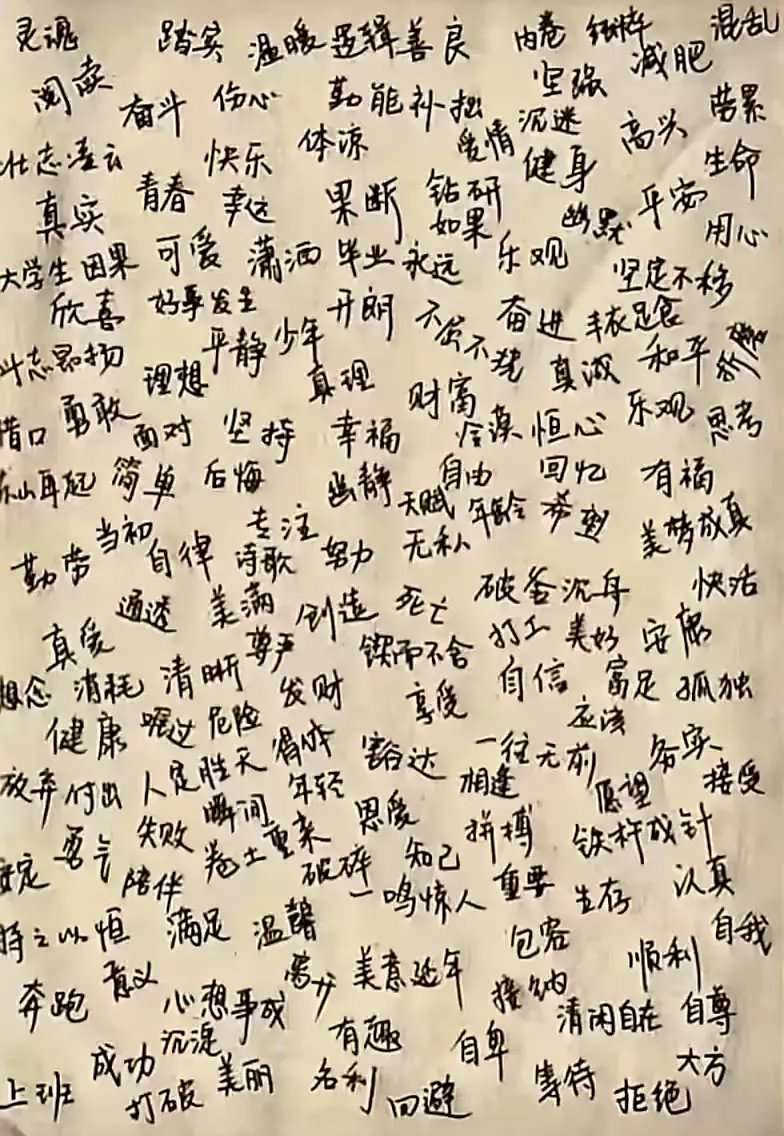 灵魂 踏实 温暖 逻辑 善良 内卷 纯粹 混乱
阅读 奋斗 伤心 勤能补拙 坚强 减肥
壮志凌云 快乐 体谅 爱情 沉迷 高兴 劳累
真实 青春 幸运 果断 钻研 健身 生命
如果 幽默 平安 用心
大学生 因果 可爱 潇洒 毕业 永远 乐观 坚定不移
欣喜 好事发生 开朗 不屈不挠 奋进 丰衣足食
斗志昂扬 理想 平静 少年 真理 财富 真诚 和平
借口 勇敢 面对 坚持 幸福 冷漠 恒心 乐观 思考
东山再起 简单 后悔 幽静 自由 回忆 有福
勤劳 当初 自律 专注 诗歌 努力 天赋 无私 年龄 美梦成真
真爱 通透 美满 尊严 创造 死亡 破釜沉舟 快活
锲而不舍 打工 美好 安康
想念 消耗 清晰 发财 享受 自信 富足 孤独
健康 嘱过 危险 得体 豁达 一往无前 应该 务实
放弃 付出 人定胜天 年轻 相逢 愿望 接受
安定 勇气 失败 瞬间 卷土重来 恩爱 拼搏 铁杵成针
陪伴 破碎 知己 一鸣惊人 重要 生存 认真
持之以恒 满足 温馨 包容 自我
奔跑 意义 心想事成 美意延年 接纳 顺利
沉淀 有趣 清闲自在 自尊
上班 成功 打破 美丽 名利 回避 自卑 等待 拒绝 大方